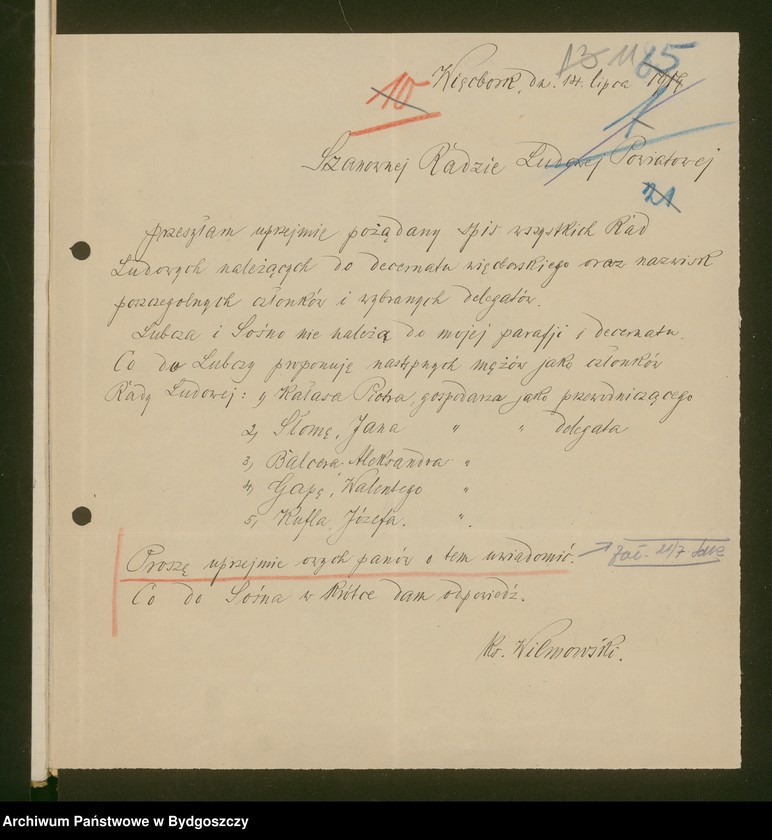 13 11 65
10
Więcbork, dn. 14. lipca 1919
Szanownej Radzie Ludowej Powiatowej
21
przesyłam uprzejmie pożądany spis wszystkich Rad
Ludowych należących do decernatu więcborskiego oraz nazwisk
poszczególnych członków i wybranych delegatów.
Lubcza i Sośno nie należą do mojej parafji i decernatu.
Co do Lubczy proponuję następnych mężów jako członków
Rady Ludowej: 1, Kałasa Piotra, gospodarza jako przewodniczącego
2, Słomę, Jana " " delegata
3, Balcera Aleksandra "
4, Gapę, Walentego "
5, Kufla, Józefa. ".
Proszę uprzejmie owych panów o tem uwiadomić.
Zał. 21/7
Co do Sośna w krótce dam odpowiedź.
Ks. Wilmowski.
Archiwum Państwowe w Bydgoszczy